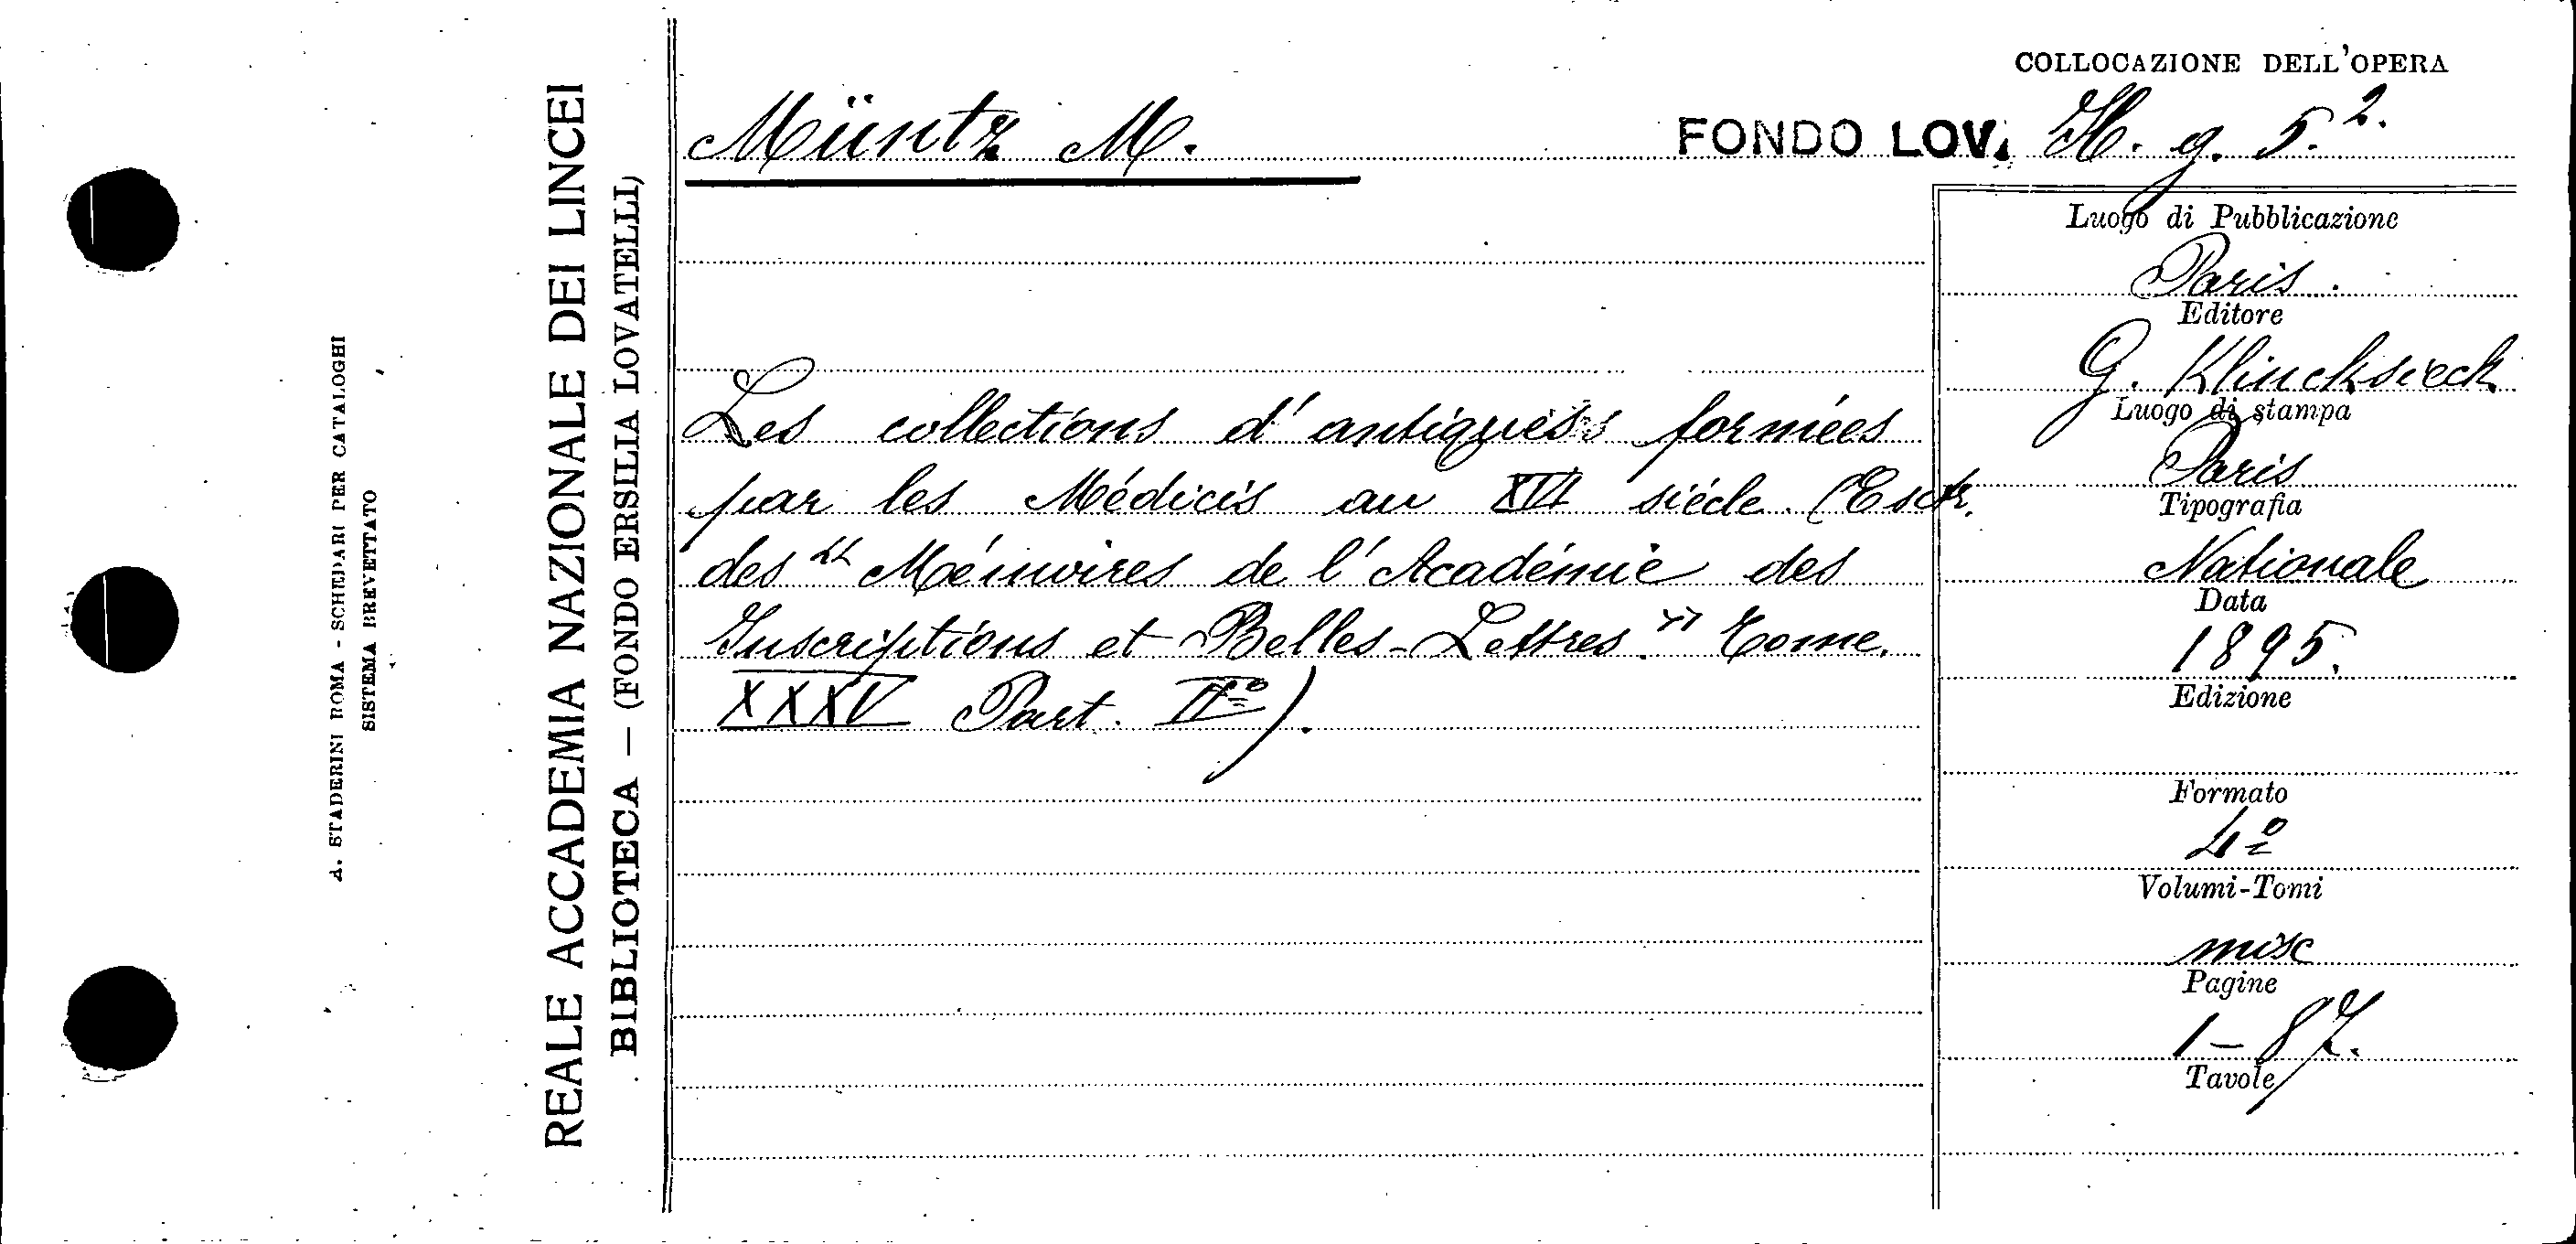 COLLOCAZIONE DELL'OPERA
Müntz M.
FONDO LOV. H. g. 5.2.
Les collections d'antiques formées
par les Médicis au XVI siécle. (Estr.
des "Mémoires de l'Académie des
Inscriptions et Belles-Lettres." Tome.
XXXV Part. IIº).
Luogo di Pubblicazione
Paris.
Editore
G. Klincksieck
Luogo di stampa
Paris
Tipografia
Nationale
Data
1895.
Edizione
Formato
4º
Volumi-Tomi
misc
Pagine
1-87.
Tavole
REALE ACCADEMIA NAZIONALE DEI LINCEI
BIBLIOTECA — (FONDO ERSILIA LOVATELLI)
A. STADERINI ROMA - SCHEDARI PER CATALOGHI
SISTEMA BREVETTATO